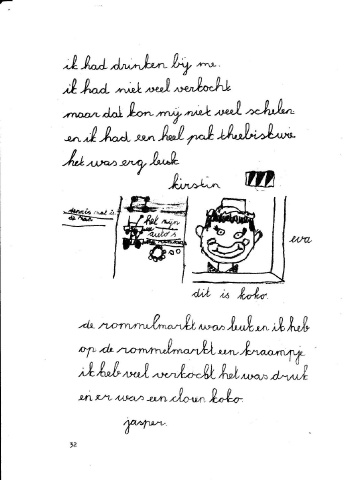 ik had drinken bij me.
ik had niet veel verkocht
maar dat kon mij niet veel schelen
en ik had een heel pak theebiskwie
het was erg leuk
kirstin
het zijn
auto's
eva
dit is koko.
de rommelmarkt was leuk en ik heb
op de rommelmarkt een kraampje
ik heb veel verkocht het was druk
en er was een cloun koko.
jasper.
32